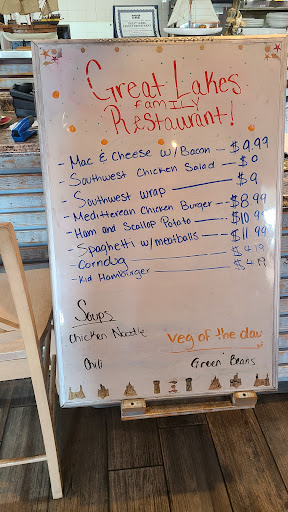 Great Lakes
family
Restaurant!
- Mac & Cheese w/ Bacon -- $9.99
- Southwest Chicken Salad - $0
- Southwest wrap $9
- Mediterrean Chicken Burger - $8.99
- Ham and Scallop Potato - $10.99
- Spaghetti w/ meatballs - $11.99
- Corndog $4.19
- Kid Hamburger $4.19
Soups
Chicken Noodle
Veg of the day
Chili
Green Beans